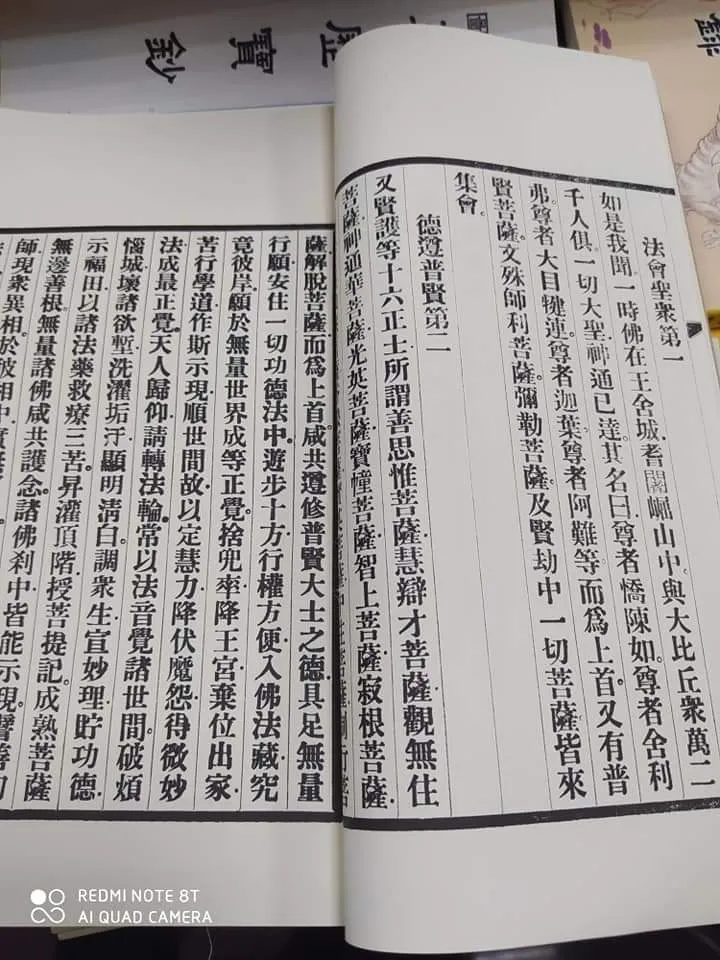 法會聖衆第一
如是我聞。一時佛在王舍城耆闍崛山中。與大比丘衆萬二
千人俱。一切大聖神通已達。其名曰尊者憍陳如。尊者舍利
弗。尊者大目犍連。尊者迦葉。尊者阿難等。而爲上首。又有普
賢菩薩。文殊師利菩薩。彌勒菩薩。及賢劫中一切菩薩皆來
集會。
德遵普賢第二
又賢護等十六正士。所謂善思惟菩薩。慧辯才菩薩。觀無住
菩薩。神通華菩薩。光英菩薩。寶幢菩薩。智上菩薩。寂根菩薩。
薩。解脫菩薩。而爲上首。咸共遵修普賢大士之德。具足無量
行願。安住一切功德法中。遊步十方。行權方便。入佛法藏。究
竟彼岸。願於無量世界成等正覺。捨兜率。降王宮。棄位出家。
苦行學道。作斯示現。順世間故。以定慧力。降伏魔怨。得微妙
法。成最正覺。天人歸仰。請轉法輪。常以法音覺諸世間。破煩
惱城。壞諸欲塹。洗濯垢汙。顯明清白。調衆生。宣妙理。貯功德。
示福田。以諸法藥救療三苦。昇灌頂階。授菩提記。成熟菩薩
無邊善根。無量諸佛咸共護念。諸佛刹中。皆能示現。譬善幻
師。現衆異相。於彼相中
寶鈔